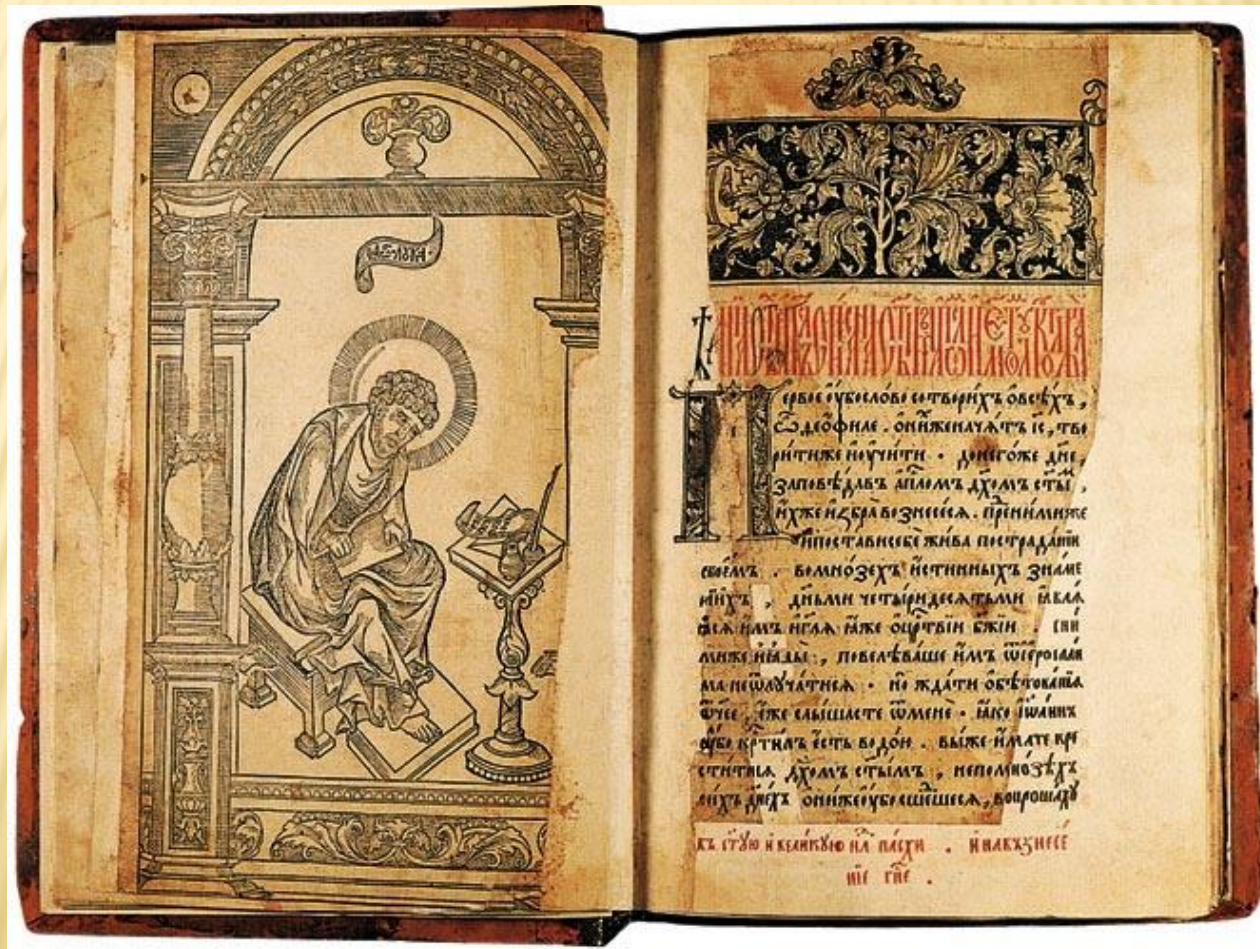 Первое ᲂу҆бо слово сотвори́хъ ѻ҆ всѣ́хъ ,
ѽ деѻ҆́филе . ѡ҆ ни́хже начѧ́тъ і҆с , тво
ри́ти же и҆ ᲂу҆чи́ти . до него́же дн҃е ,
заповѣ́давъ а҆пⷭ҇ломъ дх҃омъ ст҃ы́мъ ,
и҆́хже и҆збра̀ вознесе́сѧ . пред ни́миже
и҆ поста́ви себѐ жи́ва по страда́нїи
свое́мъ . во мно́зехъ и҆́стинныхъ зна́ме
нїихъ , дн҃ьми четы́ридесѧтьми ꙗ҆влѧ́
ѧсѧ и҆́мъ и҆ гл҃ѧ ꙗ҆́же ѡ҆ црⷭ҇твїи бж҃їи . с ни́
миже и҆ ꙗ҆ды̀ , повелѣва́ше и҆́мъ ѿ і҆ерⷭ҇али
ма не ѿлꙋча́тисѧ . но жда́ти ѻ҆бѣтова́нїѧ
ѻ҆́ч҃ее , е҆́же слы́шасте ѿ менѐ . ꙗ҆́ко і҆ѡа́ннъ
ᲂу҆́бо крⷭ҇ти́лъ е҆́сть водо́ю . вы́ же и҆́мате кре
сти́тисѧ дх҃омъ ст҃ы́мъ , не по мно́зѣхъ
си́хъ дн҃ехъ ѻ҆ни́ же ᲂу҆́бо сше́дшесѧ , вопроша́хꙋ
въ ст҃ꙋю и҆ вели́кꙋю нлⷧ҇ю па́схи . и҆ на възнесе́
нїе гн҃е .